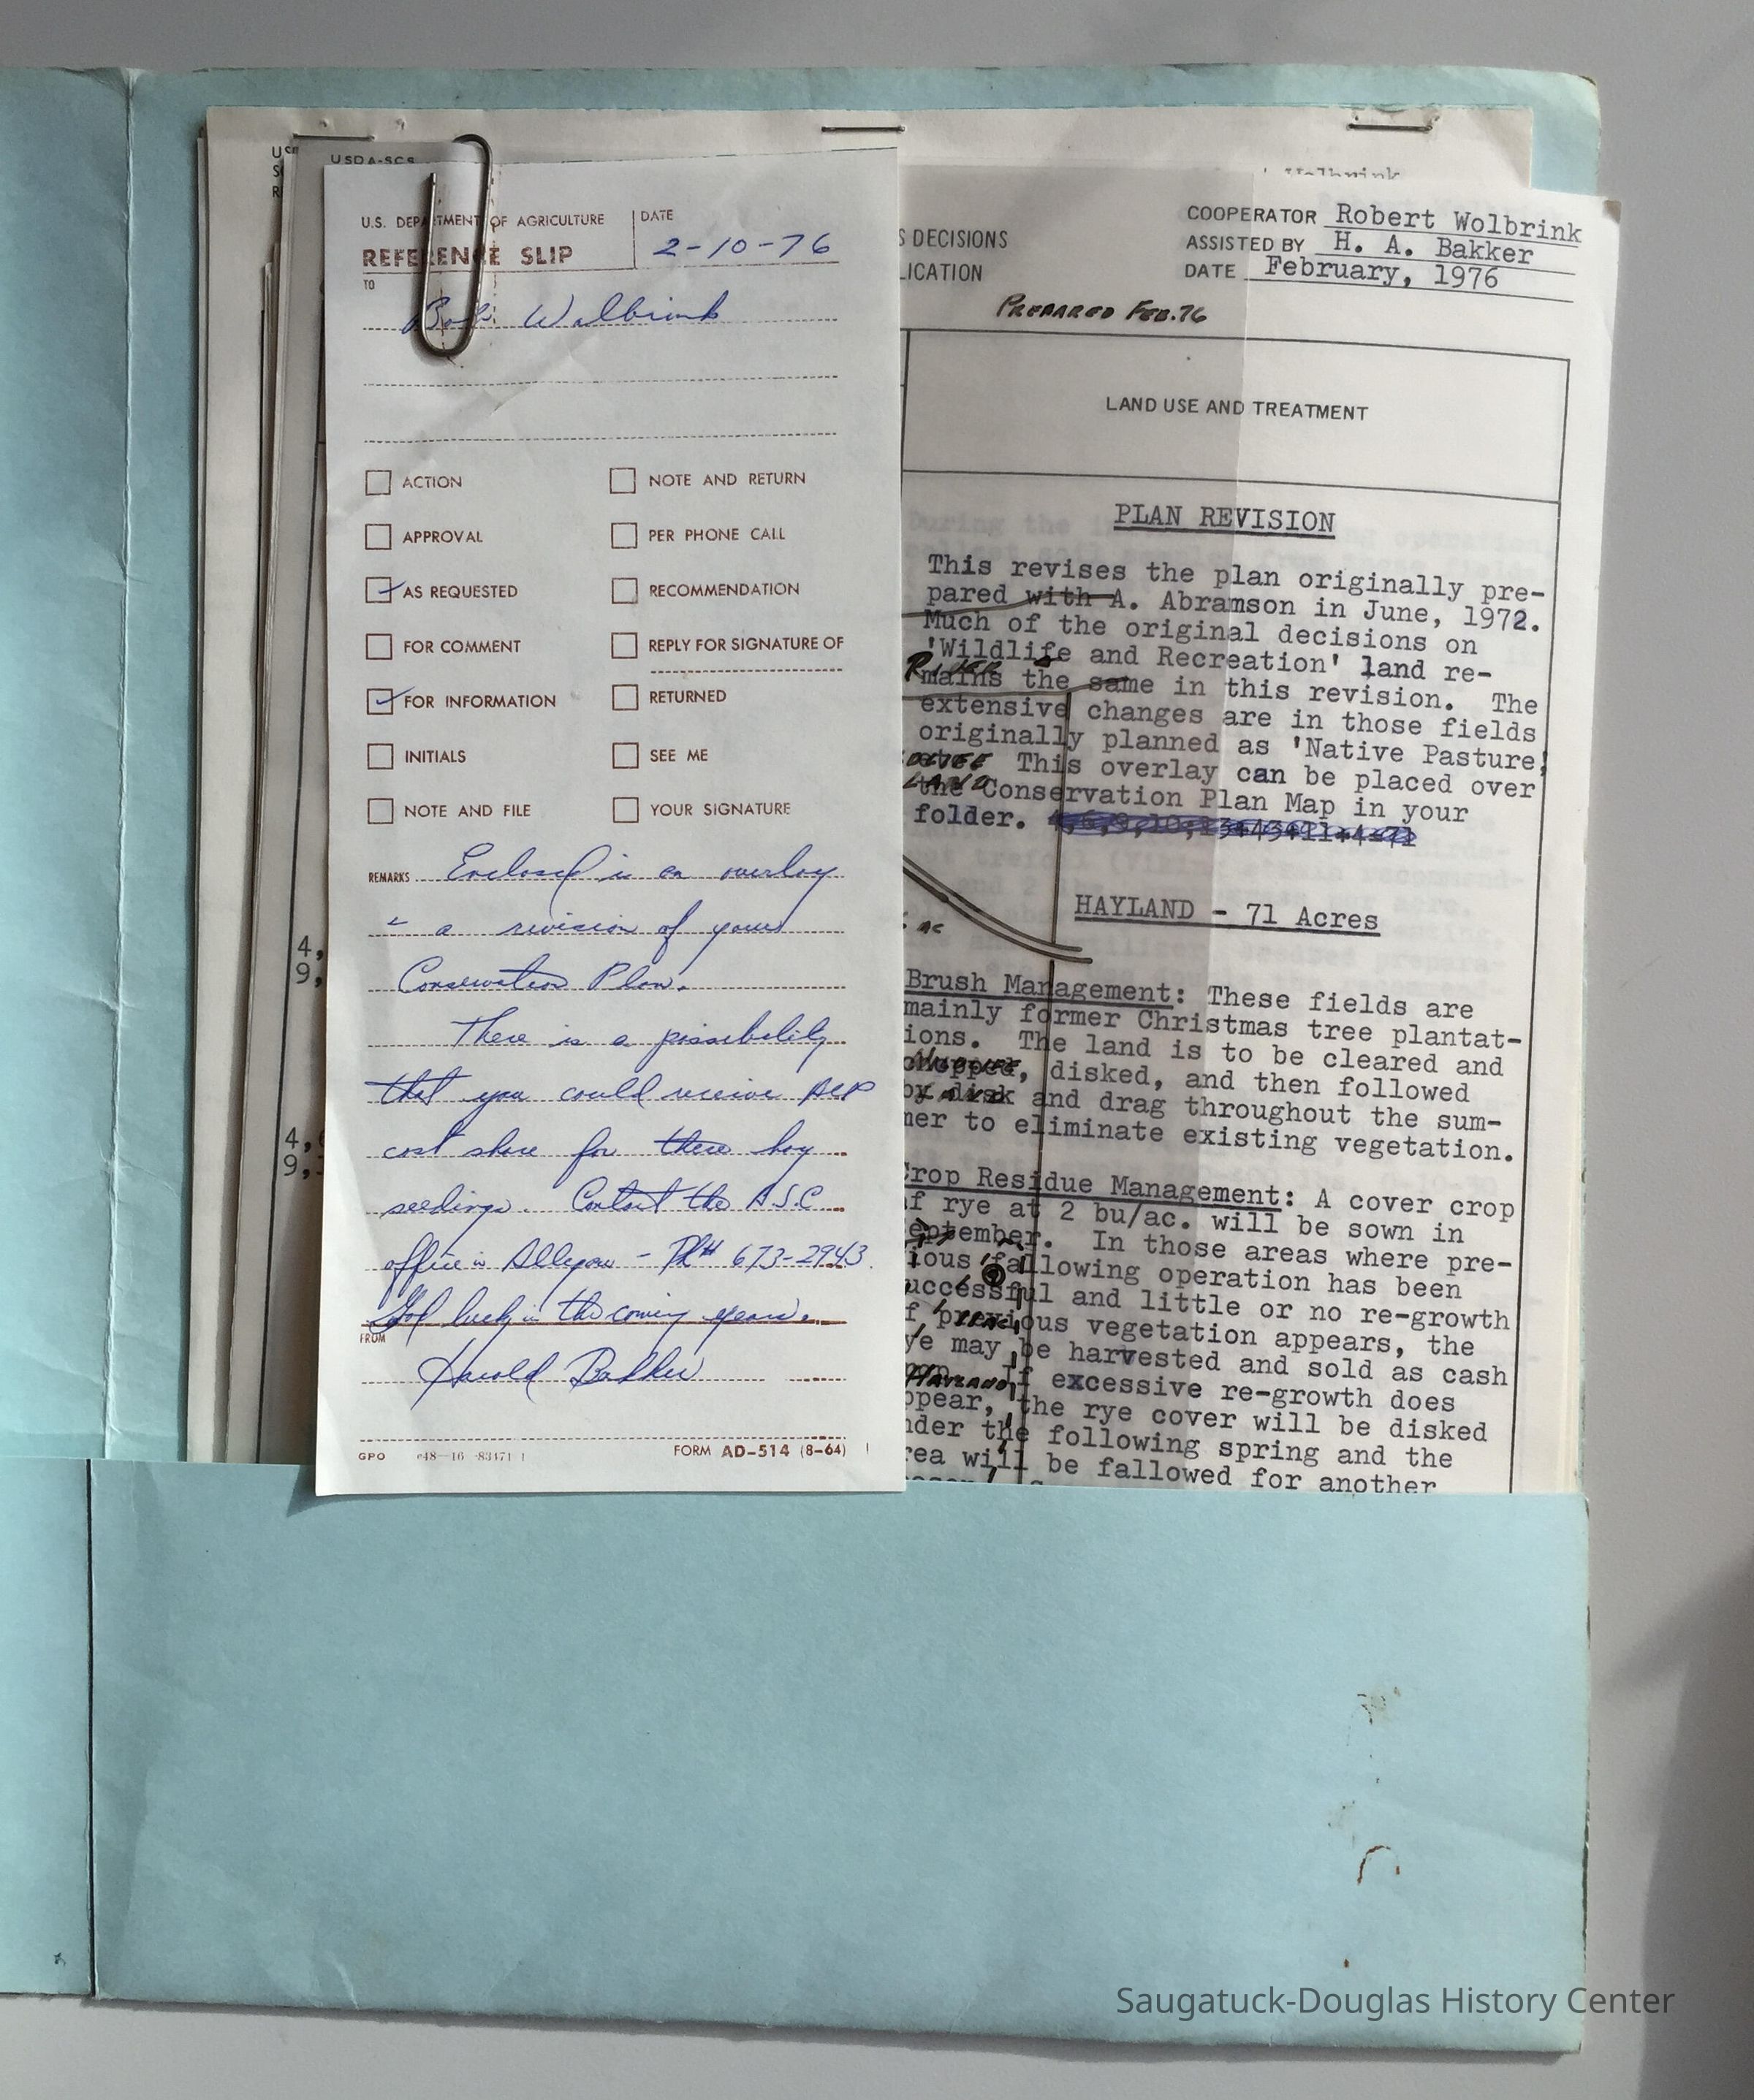 USDA-SCS
U.S. DEPARTMENT OF AGRICULTURE
REFERENCE SLIP
DATE
2-10-76
TO
Bob Wolbrink
ACTION
NOTE AND RETURN
APPROVAL
PER PHONE CALL
AS REQUESTED
RECOMMENDATION
FOR COMMENT
REPLY FOR SIGNATURE OF
FOR INFORMATION
RETURNED
INITIALS
SEE ME
NOTE AND FILE
YOUR SIGNATURE
REMARKS Enclosed is an overlay
& a revision of your
Conservation Plan.
There is a possibility
that you could receive ACP
cost share for these hay
seedings. Contact the A.S.C
office in Allegan - Ph# 673-2943.
Good luck in the coming years.
FROM
Harold Bakker
GPO
FORM AD-514 (8-64)
4,
9,
4,
9,
Wolbrink
S DECISIONS
LICATION
COOPERATOR Robert Wolbrink
ASSISTED BY H. A. Bakker
DATE February, 1976
PREPARED FEB. 76
LAND USE AND TREATMENT
PLAN REVISION
This revises the plan originally pre-
pared with A. Abramson in June, 1972.
Much of the original decisions on
'Wildlife and Recreation' land re-
mains the same in this revision. The
extensive changes are in those fields
originally planned as 'Native Pasture,
This overlay can be placed over
the Conservation Plan Map in your
folder.
RIVER
LAND
HAYLAND - 71 Acres
AC
Brush Management: These fields are
mainly former Christmas tree plantat-
ions. The land is to be cleared and
chopped, disked, and then followed
by disk and drag throughout the sum-
mer to eliminate existing vegetation.
Crop Residue Management: A cover crop
of rye at 2 bu/ac. will be sown in
September. In those areas where pre-
ious fallowing operation has been
uccessful and little or no re-growth
f previous vegetation appears, the
ye may be harvested and sold as cash
If excessive re-growth does
ppear, the rye cover will be disked
nder the following spring and the
rea will be fallowed for another
HAYLAND
Saugatuck-Douglas History Center